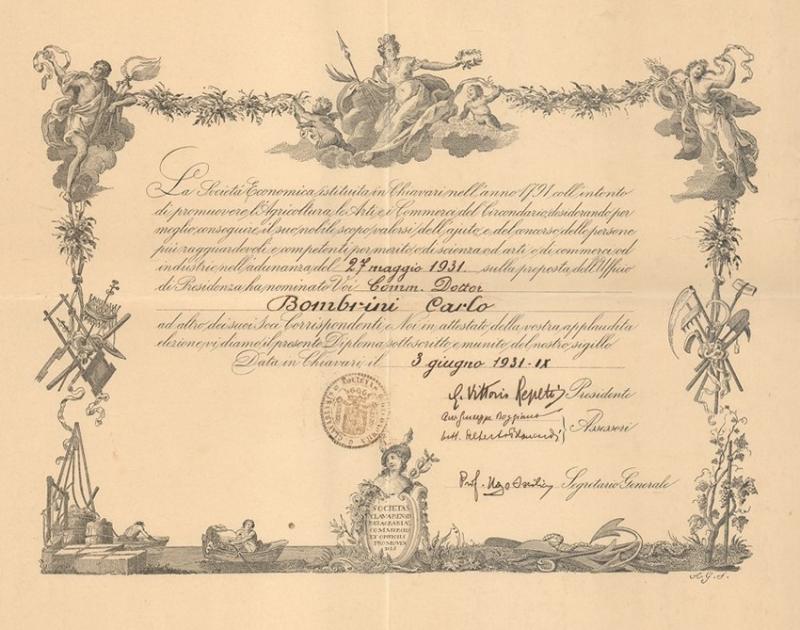 La Società Economica, istituita in Chiavari nell'anno 1791 coll'intento
di promuovere l'Agricoltura, le Arti e i Commerci del Circondario, desiderando per
meglio conseguire il suo nobile scopo, valersi dell'ajuto e del concorso delle persone
più ragguardevoli e competenti per merito e di scienza ed arti e di commerci ed
industrie, nell'adunanza del 27 maggio 1931 sulla proposta dell'Ufficio
di Presidenza ha nominato Voi Comm. Dottor
Bombrini Carlo
ad altro dei suoi Soci Corrispondenti e Noi in attestato della vostra applaudita
elezione, vi diamo il presente Diploma sottoscritto e munito del nostro sigillo
Data in Chiavari, il 3 giugno 1931-IX
Vittorio Presidente
Assessori
Prof. Segretario Generale
SOCIETAS
CLAVARENSIS
COMMERCIIS
ET OPIFICIIS
A.G.f.